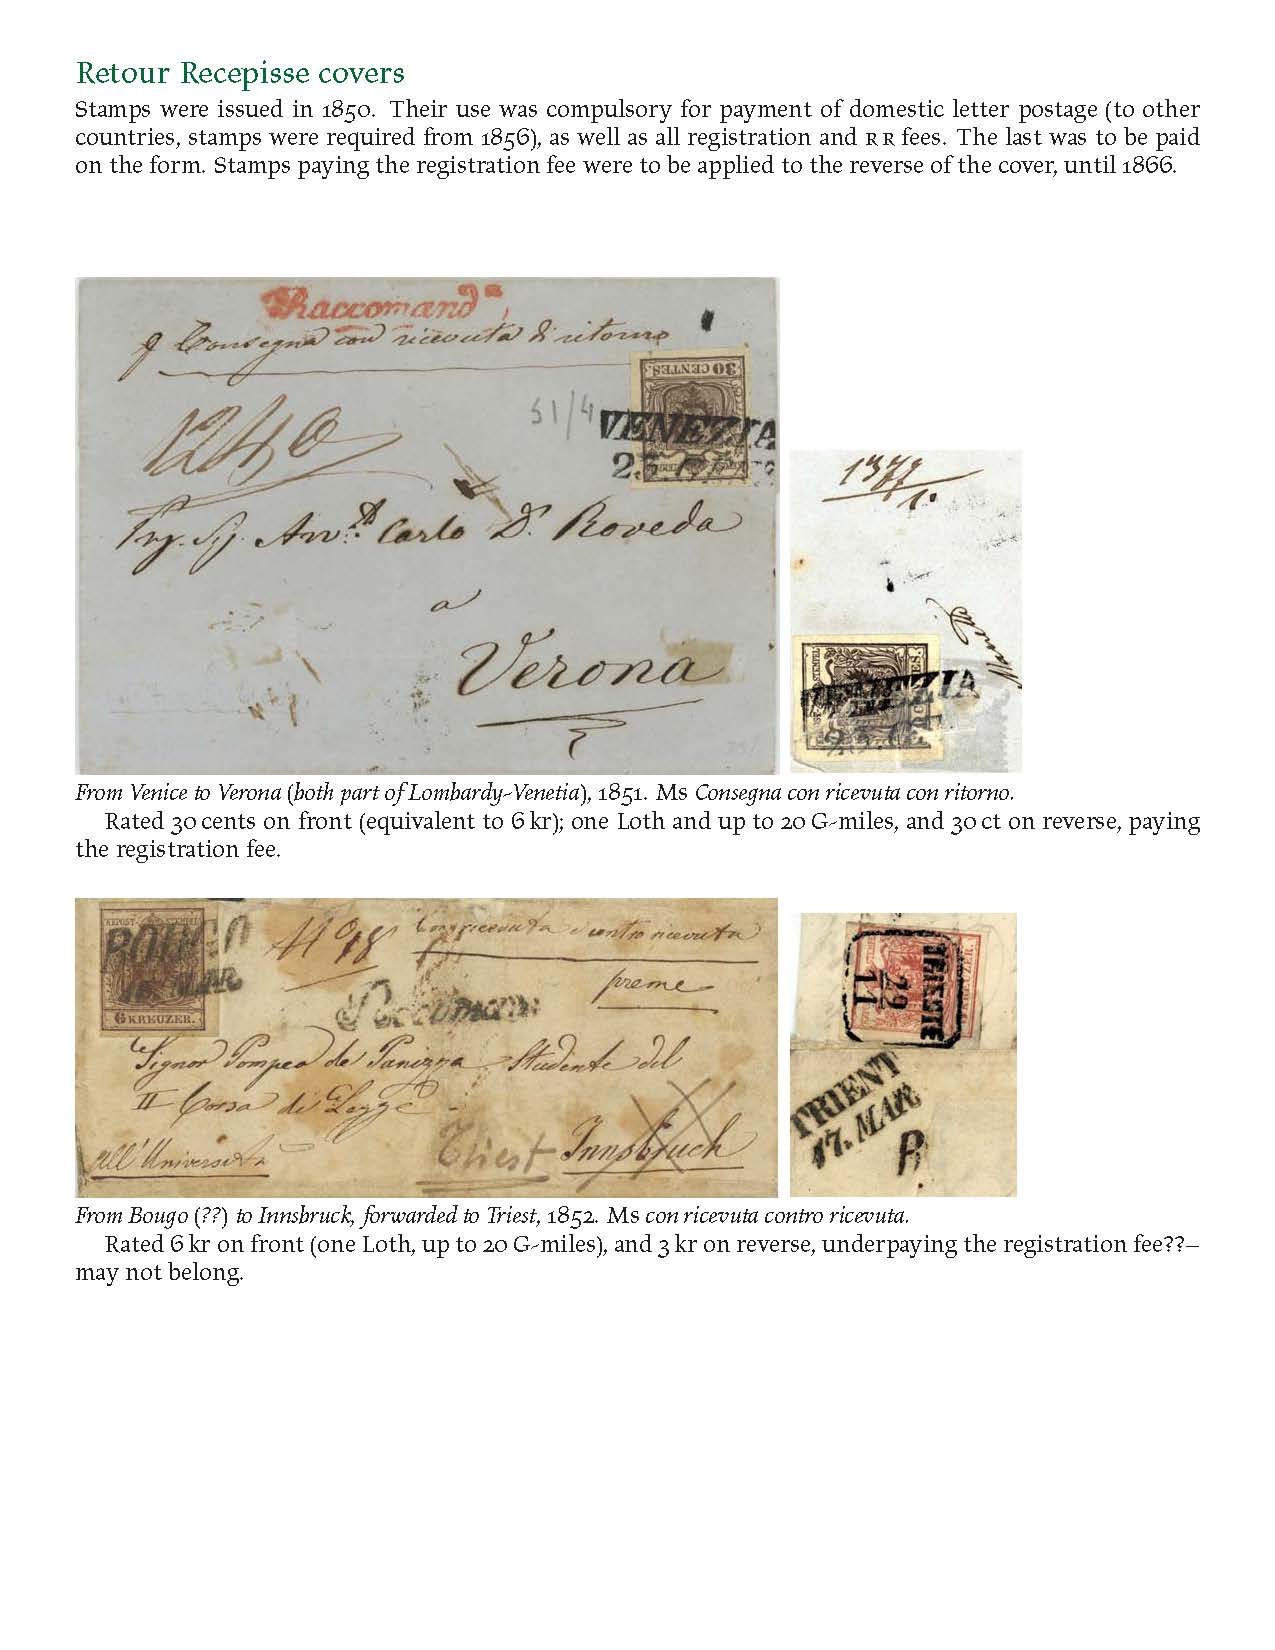 Retour Recepisse covers
Stamps were issued in 1850. Their use was compulsory for payment of domestic letter postage (to other
countries, stamps were required from 1856), as well as all registration and RR fees. The last was to be paid
on the form. Stamps paying the registration fee were to be applied to the reverse of the cover, until 1866.
Raccomandᵃ
Consegna con ricevuta di ritorno
30 CENTES.
51/4
VENEZIA
1240
Carlo Dr. Roveda
a
Verona
1377
VENEZIA
From Venice to Verona (both part of Lombardy-Venetia), 1851. Ms Consegna con ricevuta con ritorno.
Rated 30 cents on front (equivalent to 6 kr); one Loth and up to 20 G-miles, and 30 ct on reverse, paying
the registration fee.
KKPOST-STEMPEL
MAR
6 KREUZER.
contro ricevuta
preme
Signor Pompeo de Panizza Studente del
II Corso di Legge
all'Università
Triest Innsbruck
TRIESTE
29
11
TRIENT
17. MAR
R
From Bougo (??) to Innsbruck, forwarded to Triest, 1852. Ms con ricevuta contro ricevuta.
Rated 6 kr on front (one Loth, up to 20 G-miles), and 3 kr on reverse, underpaying the registration fee??–
may not belong.